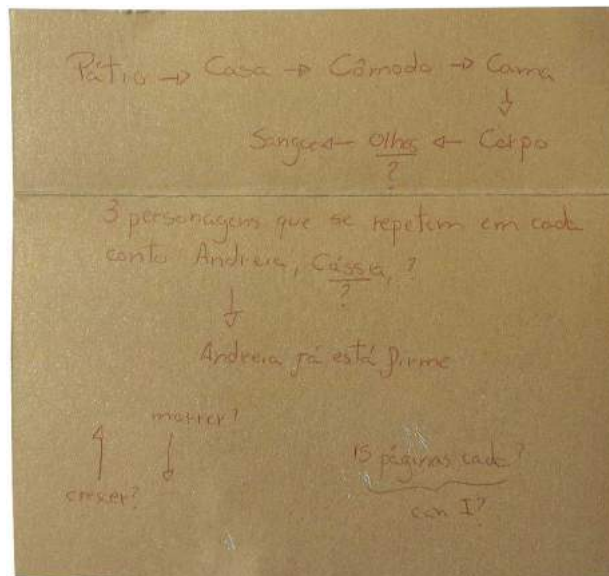 Pátio → Casa → Cômoda → Cama
↓
Sangue ← Olhos ← Corpo
?
3 personagens que se repetem em cada
conto Andreia, Cássia, ?
?
↓
Andreia já está firme
morrer?
↑ ↓
crescer?
15 páginas cada?
can I?